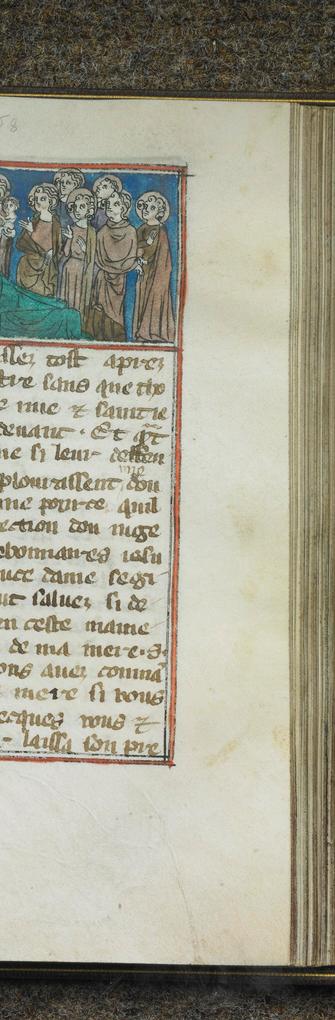 58
allez tost apriez
tre sans que
e mie & saintie
deuant. Et qñt
ne si leur deffen
mie
plourassent don
me pource quil
rection don iuge
ebonnaires iesu
uce dame se gi
ut saluez si de
en ceste manie
de ma mere. S.
ons auez
mere si vous
ecques vous &
laissa son pre